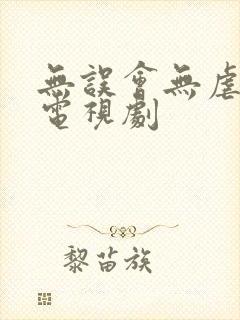 無誤會無虐
電視劇
黎苗族